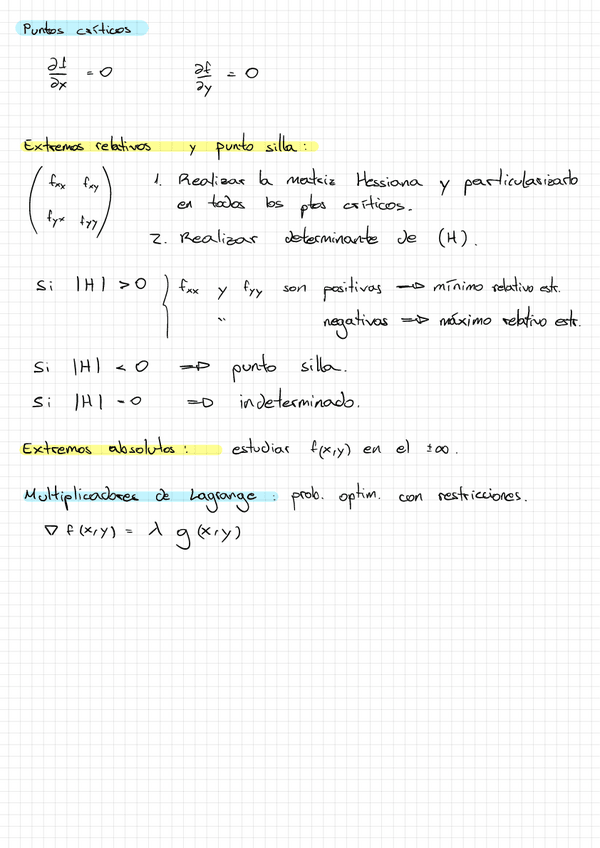 Puntos críticos
∂f/∂x = 0 ∂f/∂y = 0
Extremos relativos y punto silla:
( fxx fxy
fyx fyy )
1. Realizar la matriz Hessiana y particularizarlo
en todos los ptos críticos.
2. Realizar determinante de (H).
Si |H| > 0 } fxx y fyy son positivas => mínimo relativo estr.
" negativas => máximo relativo estr.
Si |H| < 0 => punto silla.
Si |H| = 0 => indeterminado.
Extremos absolutos: estudiar f(x,y) en el ±∞.
Multiplicadores de Lagrange: prob. optim. con restricciones.
∇ f(x,y) = λ g(x,y)